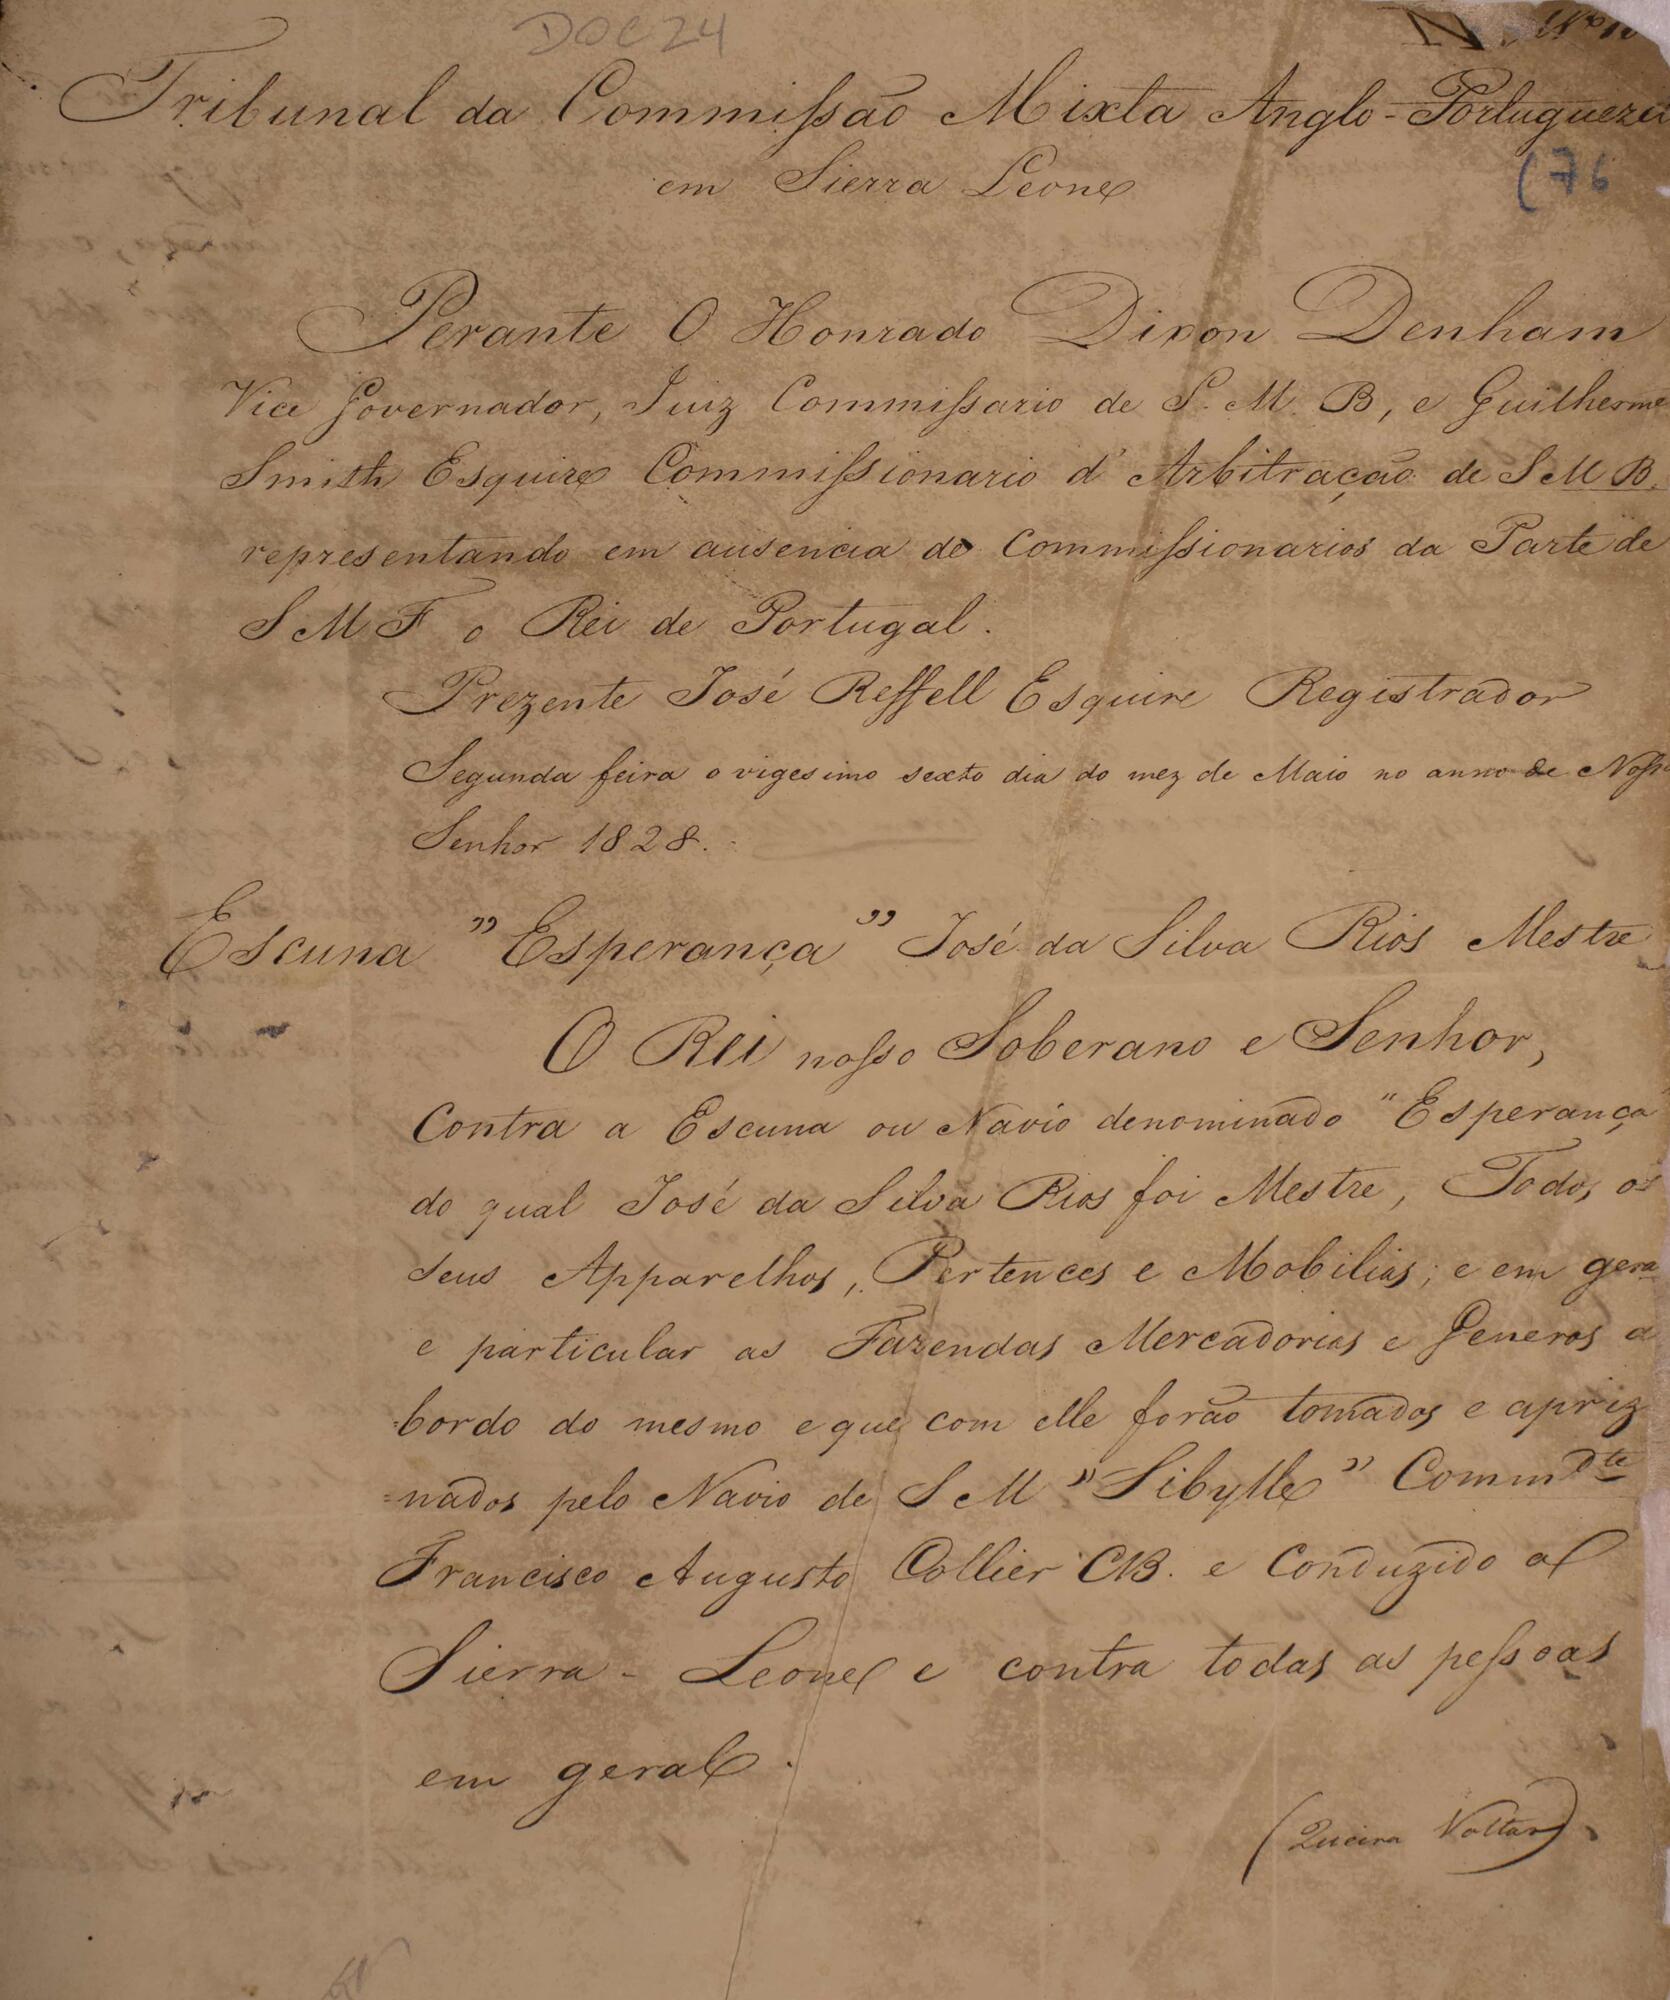 DOC 24
Tribunal da Commissão Mixta Anglo-Portugueza
em Sierra Leone
(76
Perante O Honrado Dixon Denham
Vice Governador, Juiz Commissario de S. M. B, e Guilherme
Smith Esquire Commissionario d'Arbitração de S M B.
representando em ausencia de Commissionarios da Parte de
S M F o Rei de Portugal.
Prezente José Reffell Esquire Registrador
Segunda feira o vigesimo sexto dia do mez de Maio no anno de Nosso
Senhor 1828.
Escuna "Esperança" José da Silva Rios Mestre
O Rei nosso Soberano e Senhor,
Contra a Escuna ou Navio denominado "Esperança"
do qual José da Silva Rios foi Mestre, Todos os
seus Apparelhos, Pertences e Mobilias; e em gera
e particular as Fazendas Mercadorias e Generos a
bordo do mesmo e que com elle forão tomados e apriz
=nados pelo Navio de S M "Sibylle" Commdte
Francisco Augusto Collier CB. e Conduzido a
Sierra-Leone e contra todas as pessoas
em geral.
(Queira Voltar)